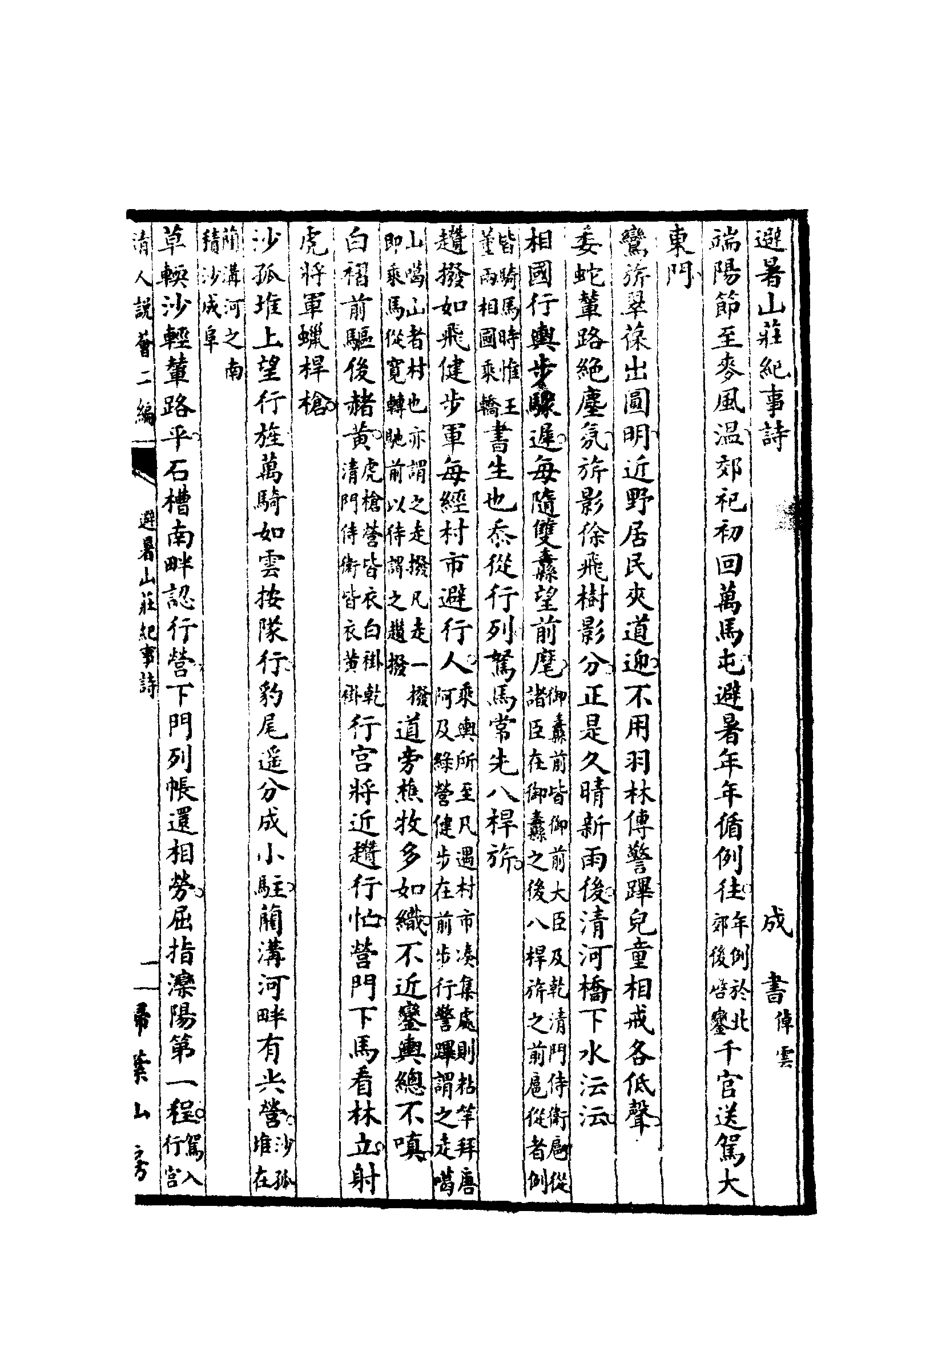 避暑山莊紀事詩 成 書倬雲
端陽節至麥風温郊祀初回萬馬屯避暑年年循例往年例於北郊後啓鑾千官送駕大
東門
鸞旂翠葆出圓明近野居民夾道迎不用羽林傳警蹕兒童相戒各低聲
委蛇輦路絶塵氛旂影徐飛樹影分正是久晴新雨後清河橋下水沄沄
相國行輿步驟遲每隨雙纛望前麾御纛前皆御前大臣及乾清門侍衛扈從諸臣在御纛之後八桿旂之前扈從者例
皆騎馬時惟王董兩相國乘轎書生也忝從行列駑馬常先八桿旂
趲撥如飛健步軍每經村市避行人乘輿所至凡遇村市湊集處則粘竿拜唐阿及綠營健步在前步行警蹕謂之走噶
山噶山者村也亦謂之走撥凡走一撥即乘馬從寬轉馳前以待謂之趲撥道旁樵牧多如織不近鑾輿總不嗔
白褶前驅後赭黃虎槍營皆衣白褂乾清門侍衛皆衣黃褂行宫將近趲行忙營門下馬看林立射
虎將軍蠟桿槍
沙孤堆上望行旌萬騎如雲按隊行豹尾遥分成小駐藺溝河畔有尖營沙孤堆在
藺溝河之南積沙成阜
草輭沙輕輦路平石槽南畔認行營下門列帳還相勞屈指灤陽第一程駕入行宫
清人説薈二編 避暑山莊紀事詩 一 掃葉山房